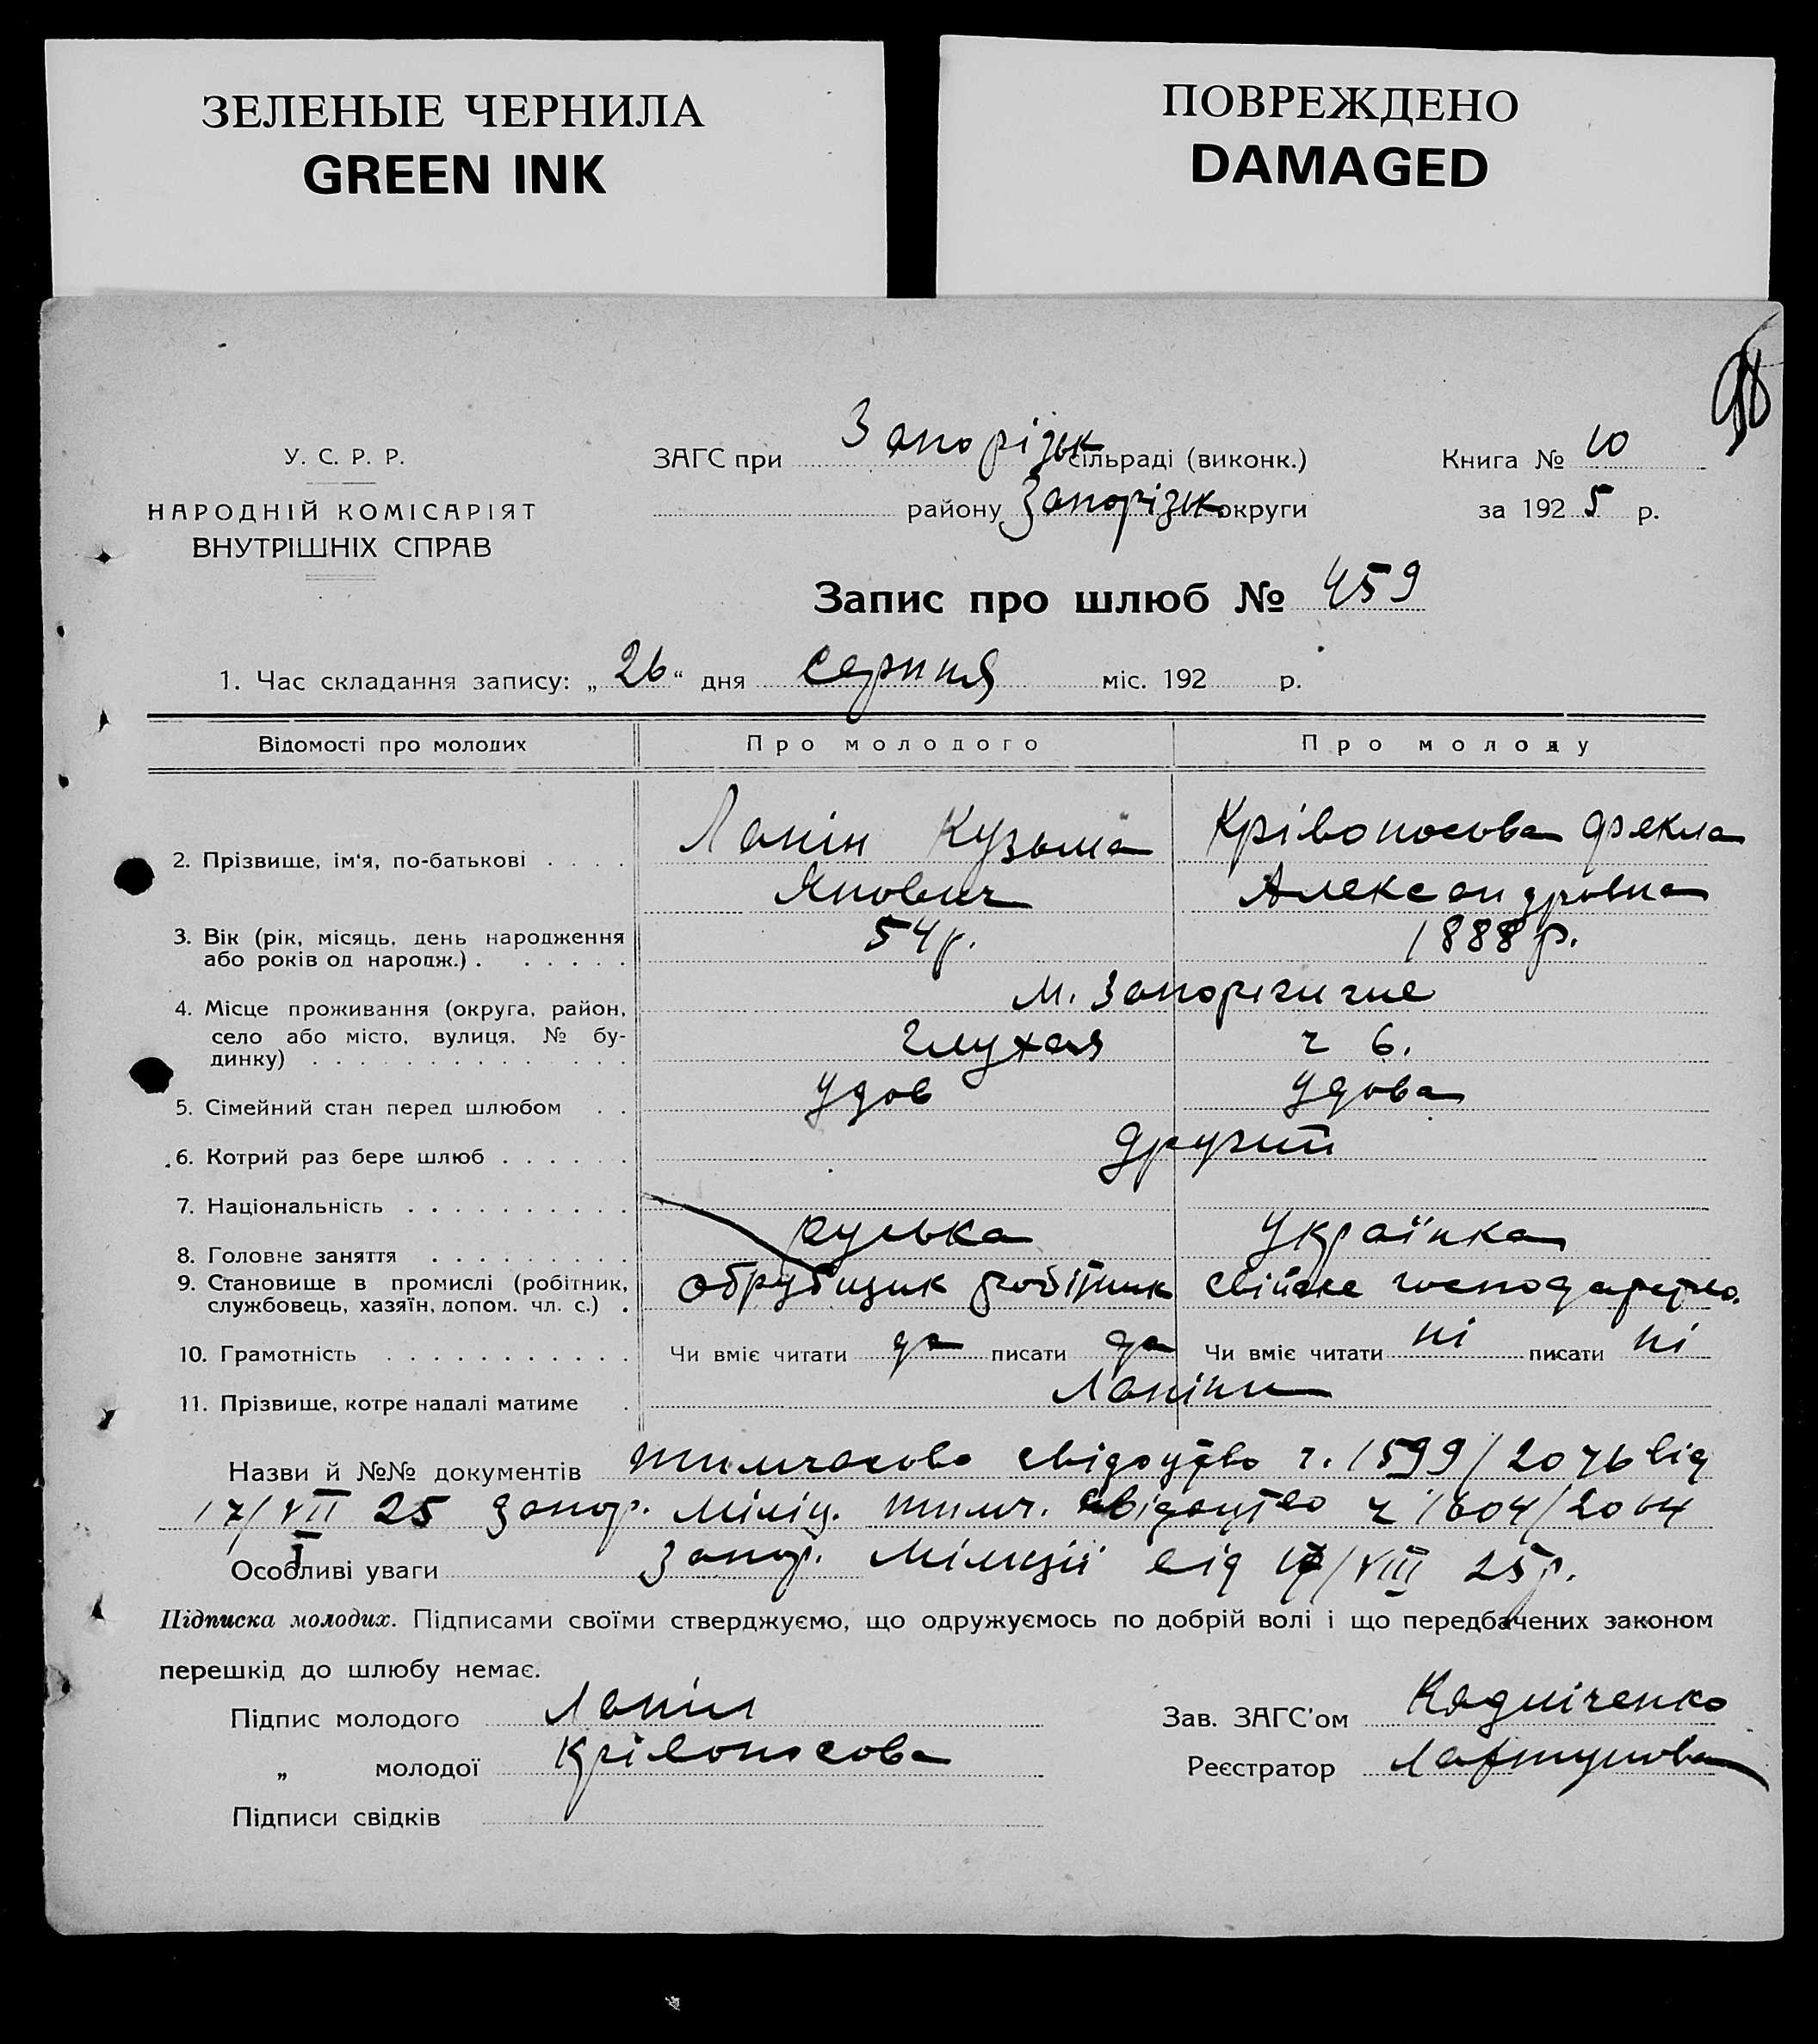 ЗЕЛЕНЫЕ ЧЕРНИЛА
GREEN INK
ПОВРЕЖДЕНО
DAMAGED
У. С. Р. Р.
НАРОДНІЙ КОМІСАРІЯТ
ВНУТРІШНІХ СПРАВ
ЗАГС при Запорізьк сільраді (виконк.)
району Запорізьк округи
Книга № 10
за 1925 р.
Запис про шлюб № 459
1. Час складання запису: „26“ дня серпня міс. 192 р.
Відомості про молодих Про молодого Про молоду
2. Прізвище, ім'я, по-батькові Лапін Кузьма Крівоносова Фекла
Александровна
3. Вік (рік, місяць, день народження 54 р. 1888 р.
або років од народж.)
4. Місце проживання (округа, район, м. Запоріжжє
село або місто, вулиця, № бу- Глухая ч 6.
динку)
5. Сімейний стан перед шлюбом Удов Удова
6. Котрий раз бере шлюб другий
7. Національність
8. Головне заняття руська Українка
9. Становище в промислі (робітник, обрубщик робітник господарство.
службовець, хазяїн, допом. чл. с.)
10. Грамотність Чи вміє читати да писати да Чи вміє читати ні писати ні
11. Прізвище, котре надалі матиме Лапіни
Назви й №№ документів тимчасово свідоцтво ч. 1599/2076 від
17/VII 25 Запор. Міліц. тимч. свідоцтво ч 1604/2064
Особливі уваги Запор. Міліції від /VIII 25 р.
Підписка молодих. Підписами своїми стверджуємо, що одружуємось по добрій волі і що передбачених законом
перешкід до шлюбу немає.
Підпис молодого Лапін
„ молодої Крівоносова
Підписи свідків
Зав. ЗАГС'ом
Реєстратор